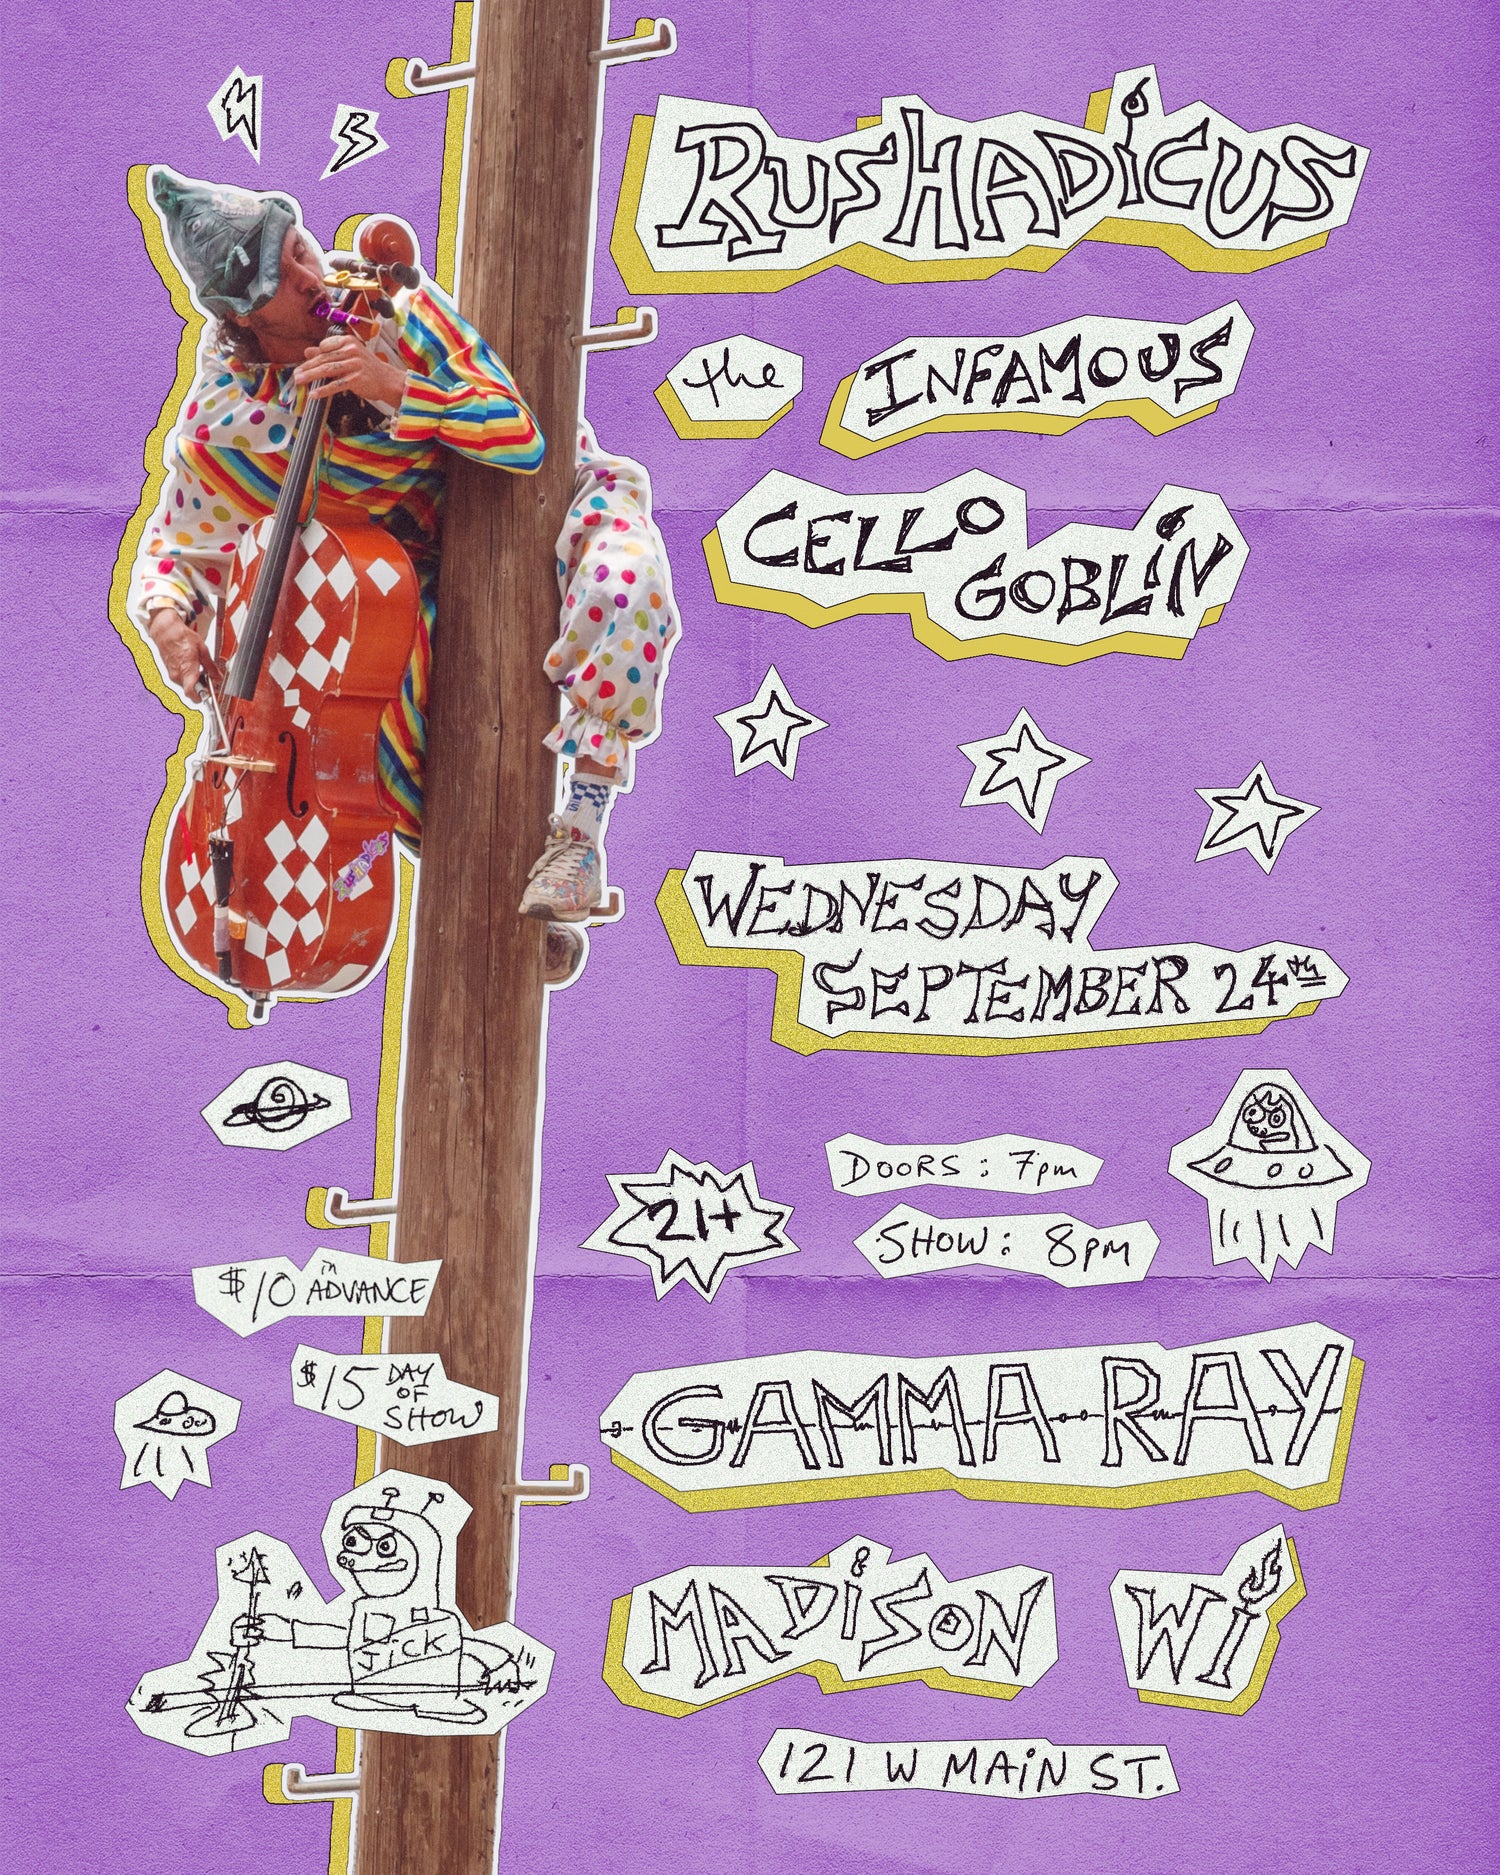 RUSHADiCUS
the INFAMOUS
CELLO
GOBLiN
WEDNESDAY
SEPTEMBER 24th
DOORS: 7pm
21+
SHOW: 8pm
$10 in ADVANCE
$15 DAY OF SHOW
GAMMA RAY
JiCK
MADiSON WI
121 W MAiN ST.